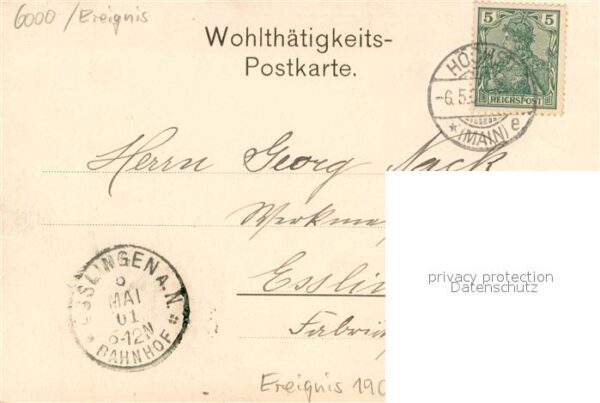 6000 / Ereignis
Wohlthätigkeits-
Postkarte.
5 5
REICHSPOST
HÖCHST
-6.5.
*(MAIN) e
Herrn Georg Nack
Werkme
Esslin
Fabrik
ESSLINGEN A. N.
6
MAI
01
5-12N
BAHNHOF
privacy protection
Datenschutz
Ereignis 190